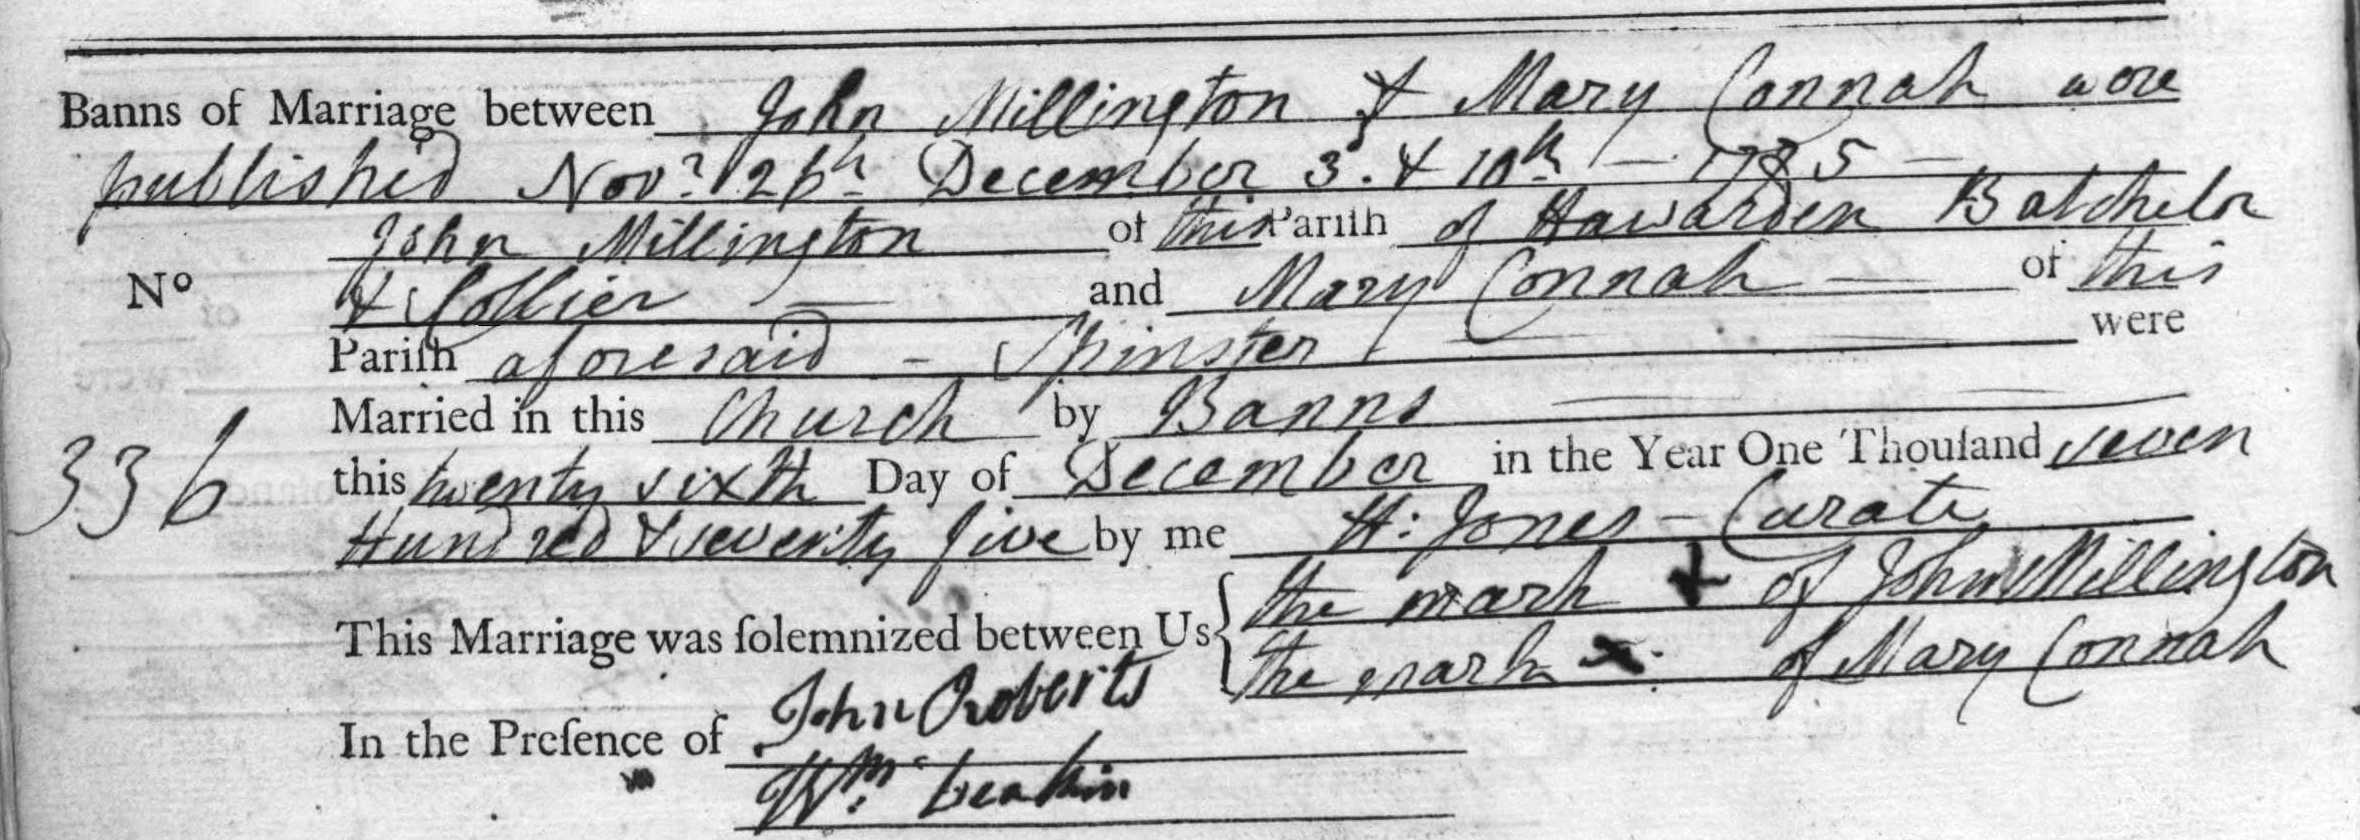 Banns of Marriage between John Millington & Mary Connah were
published Novr. 26th. December 3. & 10th — 1775 —
John Millington of this Pariſh of Hawarden Batchelor
No & Collier — and Mary Connah — of this
Pariſh aforesaid - Spinster — were
Married in this Church by Banns
336 this twenty sixth Day of December in the Year One Thouſand seven
Hundred & seventy five by me H: Jones - Curate
This Marriage was ſolemnized between Us { the mark + of John Millington
the mark x of Mary Connah
In the Preſence of John Roberts
Wm: Deakin